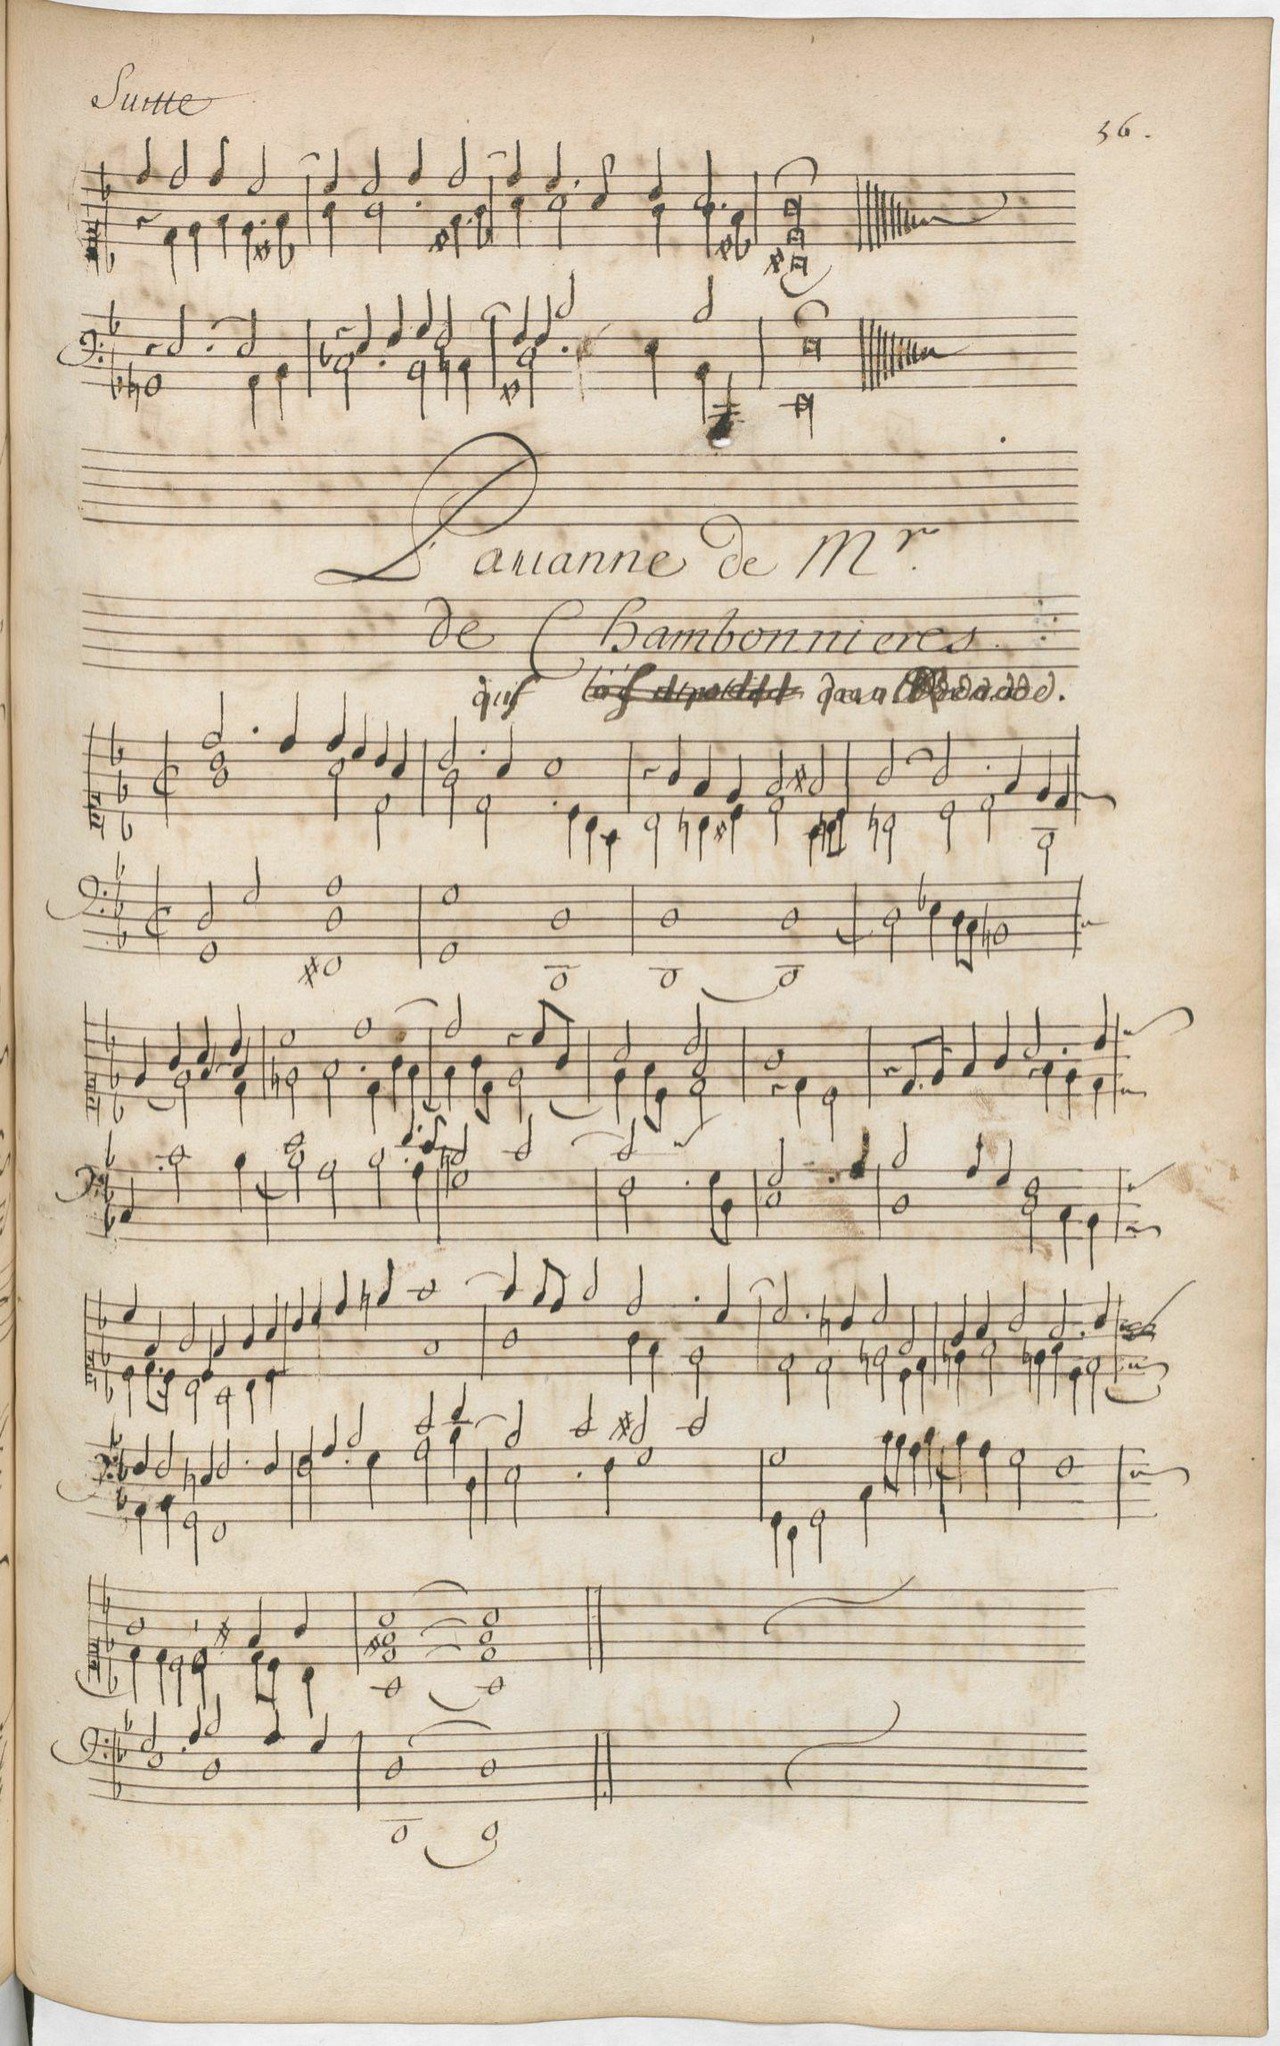 Suitte
36.
Pauanne de Mr.
de Chambonnieres